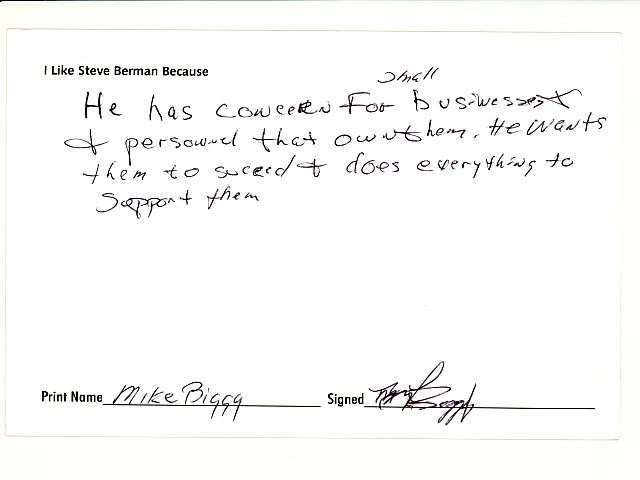 I Like Steve Berman Because
small
He has concern For businesses &
& personnel that own them. He wants
them to succeed & does everything to
support them
Print Name Mike Biggg Signed